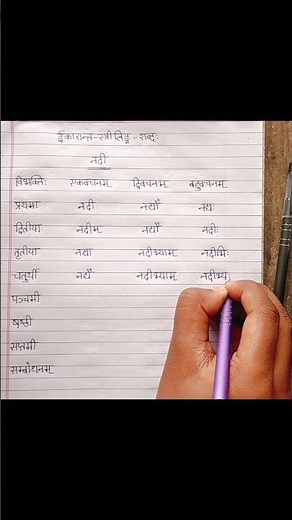 ईकारान्त-स्त्रीलिङ्ग-शब्दः
नदी
विभक्तिः एकवचनम् द्विवचनम् बहुवचनम्
प्रथमा नदी नद्यौ नद्यः
द्वितीया नदीम् नद्यौ नदीः
तृतीया नद्या नदीभ्याम् नदीभिः
चतुर्थी नद्यै नदीभ्याम् नदीभ्यः
पञ्चमी
षष्ठी
सप्तमी
सम्बोधनम्